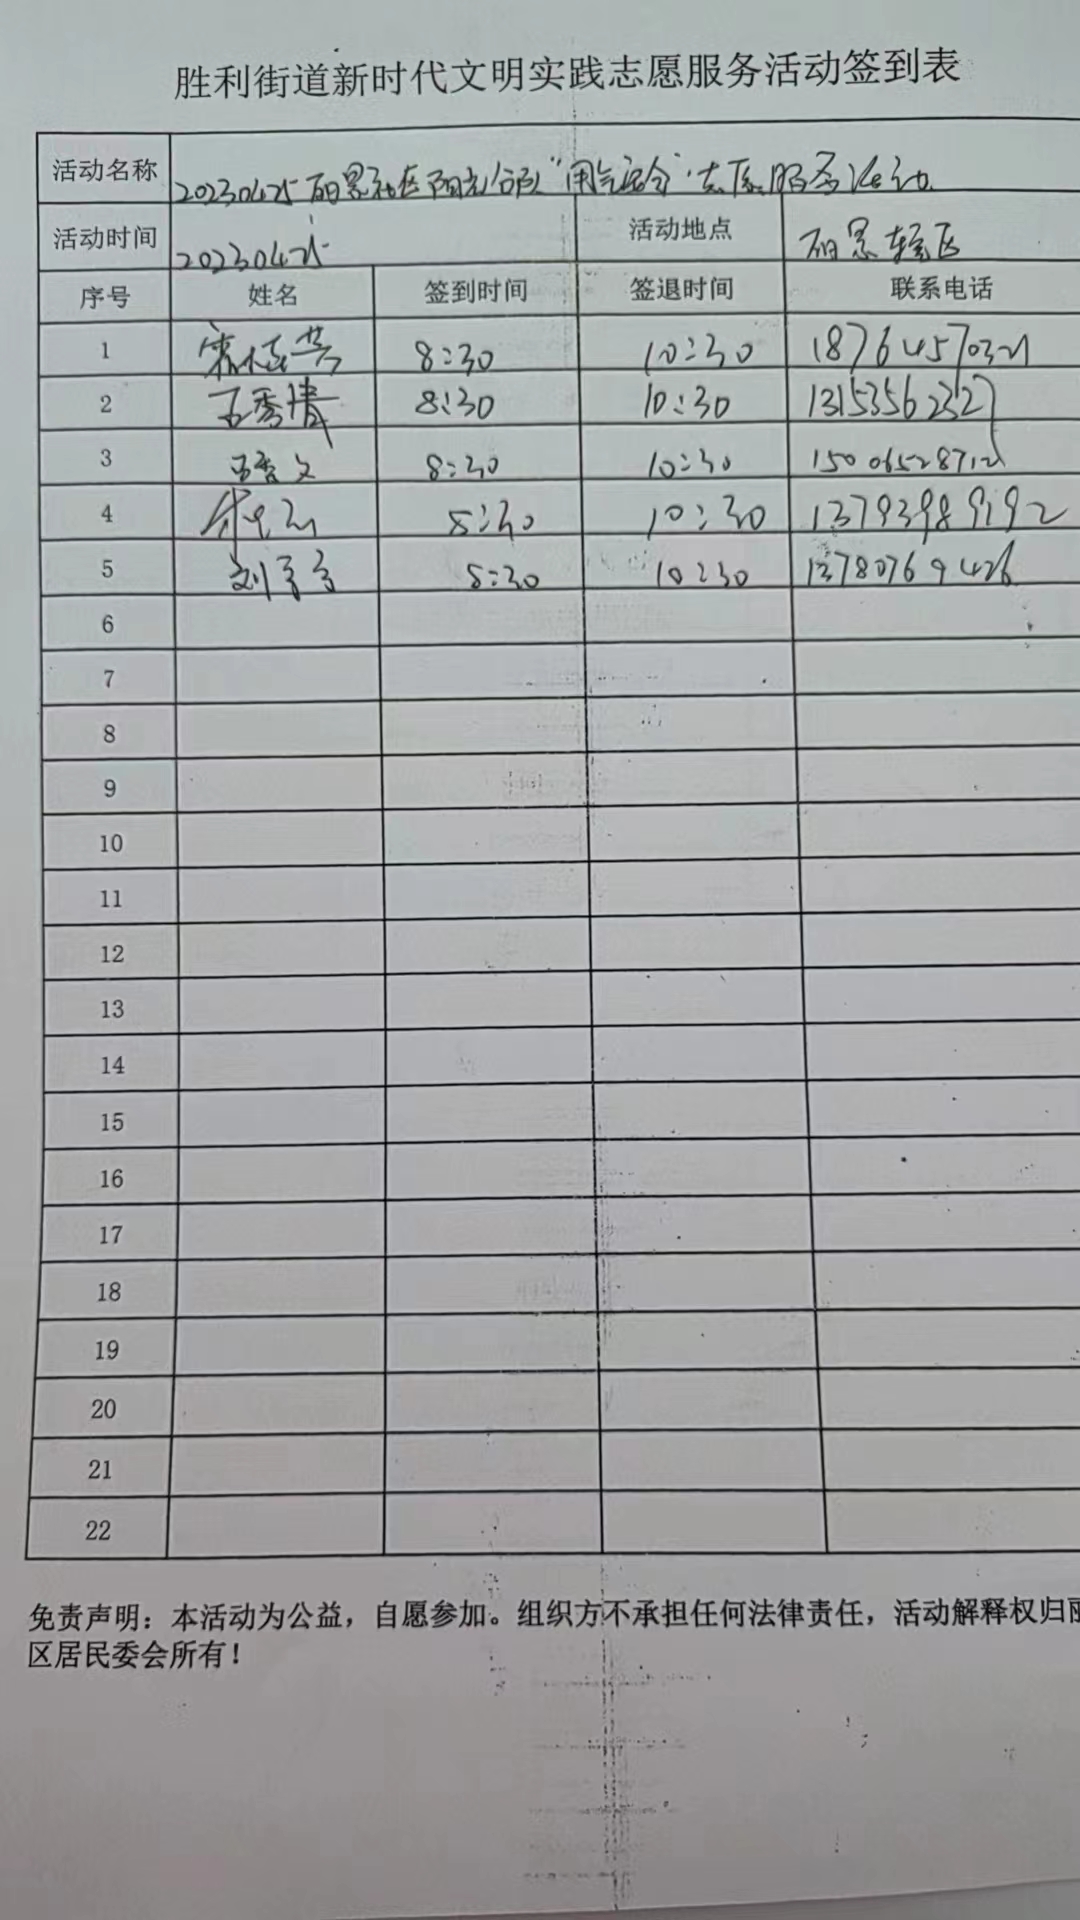 胜利街道新时代文明实践志愿服务活动签到表
活动名称 20230425 丽景社区阳光分队“用气安全”志愿服务活动
活动时间 20230425 活动地点 丽景辖区
序号 姓名 签到时间 签退时间 联系电话
1 8:30 10:30
2 王秀清 8:30 10:30 13153562327
3 王秀文 8:30 10:30
4 8:30 10:30 13793989192
5 刘 8:30 10:30 13780769426
6
7
8
9
10
11
12
13
14
15
16
17
18
19
20
21
22
免责声明：本活动为公益，自愿参加。组织方不承担任何法律责任，活动解释权归丽
区居民委会所有！